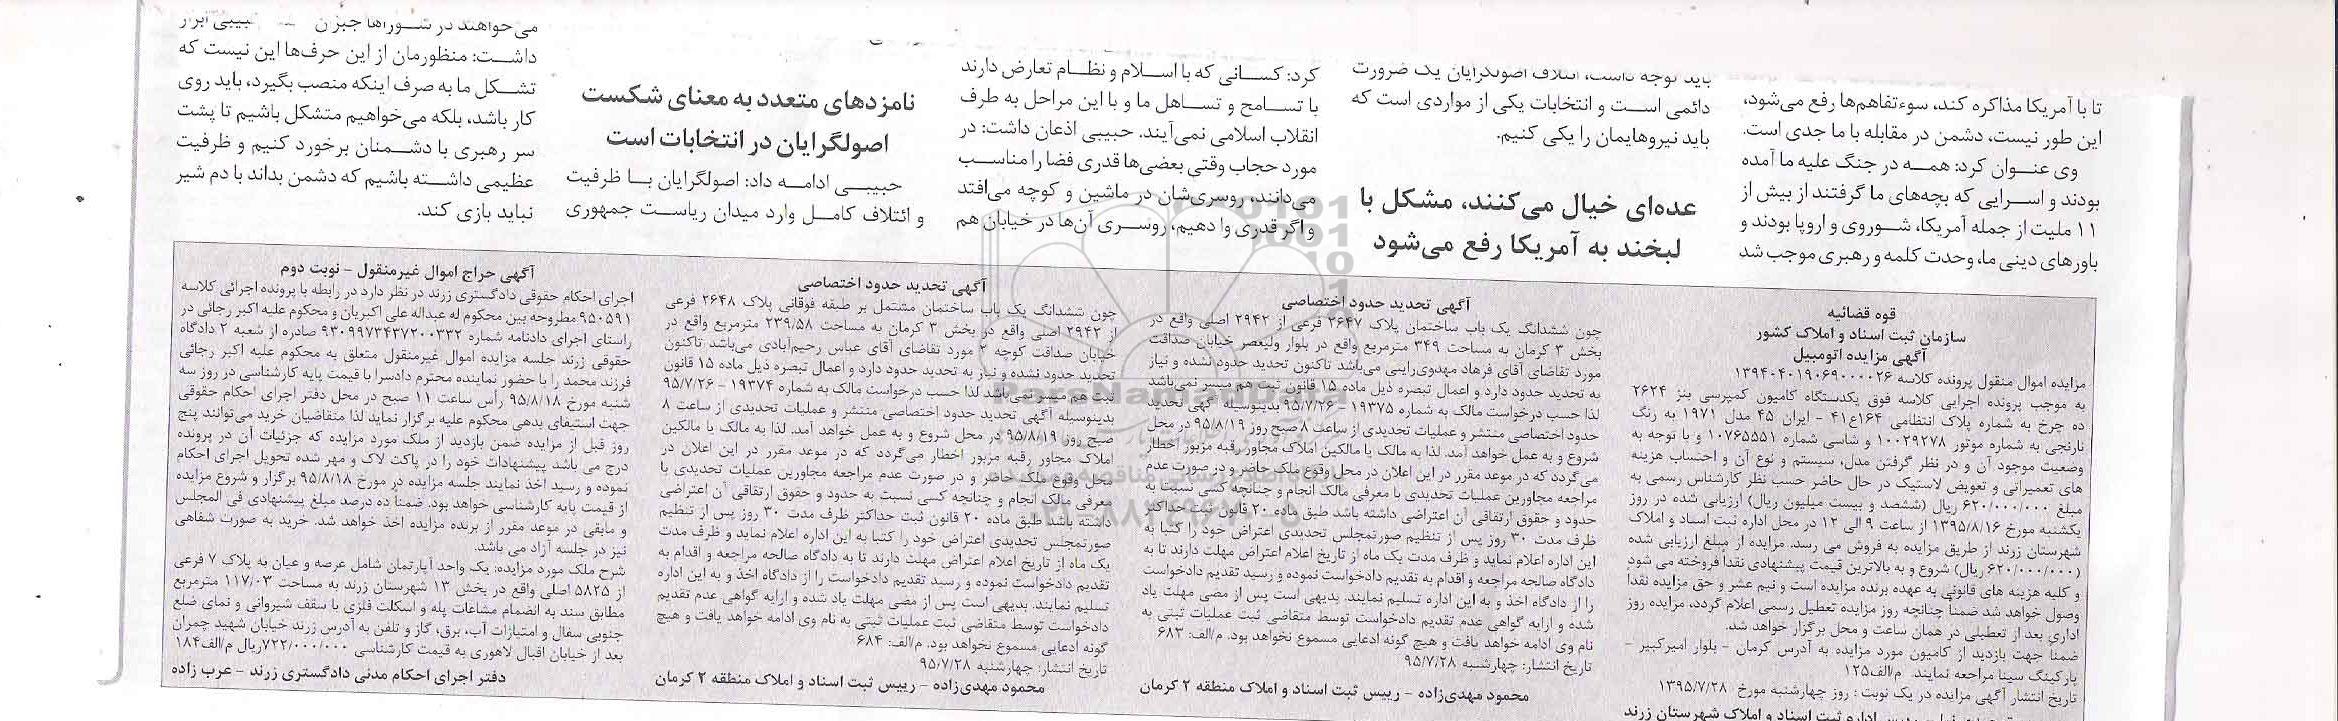 تا با آمریکا مذاکره کند، سوءتفاهم‌ها رفع می‌شود،
این طور نیست، دشمن در مقابله با ما جدی است.
وی عنـوان کرد: همـه در جنگ علیه ما آمده
بودند و اسـرایی که بچه‌های ما گرفتند از بیش از
۱۱ ملیت از جمله آمریکا، شـوروی و اروپا بودند و
باورهای دینی ما، وحدت کلمه و رهبری موجب شد
باید توجه داشت، ائتلاف اصولگرایان یک ضرورت
دائمی اسـت و انتخابات یکی از مواردی است که
باید نیروهایمان را یکی کنیم.
عده‌ای خیال می‌کنند، مشکل با
لبخند به آمریکا رفع می‌شود
کرد: کسـانی که با اسـلام و نظـام تعارض دارند
با تسـامح و تسـاهل ما و با این مراحل به طرف
انقلاب اسلامی نمی‌آیند. حبیبی اذعان داشت: در
مورد حجاب وقتی بعضی‌ها قدری فضا را مناسـب
می‌دانند، روسری‌شان در ماشین و کوچه می‌افتد
و اگر قدری وا دهیم، روسـری آن‌ها در خیابان هم
نامزدهای متعدد به معنای شکست
اصولگرایان در انتخابات است
حبیبـی ادامـه داد: اصولگرایان بـا ظرفیت
و ائتلاف کامـل وارد میدان ریاسـت جمهوری
می‌خواهند در شـوراها
داشـت: منظورمان از این حرف‌ها این نیست که
تشـکل ما به صرف اینکه منصب بگیرد، باید روی
کار باشد، بلکه می‌خواهیم متشکل باشیم تا پشت
سر رهبری با دشـمنان برخورد کنیم و ظرفیت
عظیمی داشـته باشیم که دشمن بداند با دم شیر
نباید بازی کند.
قوه قضائیه
سازمان ثبت اسناد و املاک کشور
آگهی مزایده اتومبیل
مزایده اموال منقول پرونده کلاسه ۱۳۹۴۰۴۰۱۹۰۶۹۰۰۰۰۲۶
به موجب پرونده اجرایی کلاسه فوق یکدستگاه کامیون کمپرسی بنز ۲۶۲۴
ده چرخ به شماره پلاک انتظامی ۱۶۴ع۴۱ - ایران ۴۵ مدل ۱۹۷۱ به رنگ
نارنجی به شماره موتور ۱۰۰۲۹۲۷۸ و شاسی شماره ۱۰۷۶۵۵۵۱ و با توجه به
وضعیت موجود آن و در نظر گرفتن مدل، سیستم و نوع آن و احتساب هزینه
های تعمیراتی و تعویض لاستیک در حال حاضر حسب نظر کارشناس رسمی به
مبلغ ۶۲۰/۰۰۰/۰۰۰ ریال (ششصد و بیست میلیون ریال) ارزیابی شده در روز
یکشنبه مورخ ۱۳۹۵/۸/۱۶ از ساعت ۹ الی ۱۲ در محل اداره ثبت اسناد و املاک
شهرستان زرند از طریق مزایده به فروش می رسد. مزایده از مبلغ ارزیابی شده
(۶۲۰/۰۰۰/۰۰۰ ریال) شروع و به بالاترین قیمت پیشنهادی نقداً فروخته می شود
و کلیه هزینه های قانونی به عهده برنده مزایده است و نیم عشر و حق مزایده نقداً
وصول خواهد شد ضمناً چنانچه روز مزایده تعطیل رسمی اعلام گردد، مزایده روز
اداری بعد از تعطیلی در همان ساعت و محل برگزار خواهد شد.
ضمنا جهت بازدید از کامیون مورد مزایده به آدرس کرمان - بلوار امیرکبیر -
پارکینگ سینا مراجعه نمایند. م/الف۱۲۵
تاریخ انتشار آگهی مزایده در یک نوبت : روز چهارشنبه مورخ ۱۳۹۵/۷/۲۸
آگهی تحدید حدود اختصاصی
چون ششدانگ یک باب ساختمان پلاک ۲۶۴۷ فرعی از ۲۹۴۲ اصلی واقع در
بخش ۳ کرمان به مساحت ۳۴۹ مترمربع واقع در بلوار ولیعصر خیابان صداقت
مورد تقاضای آقای فرهاد مهدوی‌راینی می‌باشد تاکنون تحدید حدود نشده و نیاز
به تحدید حدود دارد و اعمال تبصره ذیل ماده ۱۵ قانون ثبت هم میسر نمی‌باشد
لذا حسب درخواست مالک به شماره ۱۹۳۷۵ - ۹۵/۷/۲۶ بدینوسیله آگهی تحدید
حدود اختصاصی منتشر و عملیات تحدیدی از ساعت ۸ صبح روز ۹۵/۸/۱۹ در محل
شروع و به عمل خواهد آمد. لذا به مالک یا مالکین املاک مجاور رقبه مزبور اخطار
می‌گردد که در موعد مقرر در این اعلان در محل وقوع ملک حاضر و در صورت عدم
مراجعه مجاورین عملیات تحدیدی با معرفی مالک انجام و چنانچه کسی نسبت به
حدود و حقوق ارتفاقی آن اعتراضی داشته باشد طبق ماده ۲۰ قانون ثبت حداکثر
ظرف مدت ۳۰ روز پس از تنظیم صورتمجلس تحدیدی اعتراض خود را کتبا به
این اداره اعلام نماید و ظرف مدت یک ماه از تاریخ اعلام اعتراض مهلت دارند تا به
دادگاه صالحه مراجعه و اقدام به تقدیم دادخواست نموده و رسید تقدیم دادخواست
را از دادگاه اخذ و به این اداره تسلیم نمایند. بدیهی است پس از مضی مهلت یاد
شده و ارایه گواهی عدم تقدیم دادخواست توسط متقاضی ثبت عملیات ثبتی به
نام وی ادامه خواهد یافت و هیچ گونه ادعایی مسموع نخواهد بود. م/الف: ۶۸۳
تاریخ انتشار: چهارشنبه ۹۵/۷/۲۸
محمود مهدی‌زاده - رییس ثبت اسناد و املاک منطقه ۲ کرمان
آگهی تحدید حدود اختصاصی
چون ششدانگ یک باب ساختمان مشتمل بر طبقه فوقانی پلاک ۲۶۴۸ فرعی
از ۲۹۴۲ اصلی واقع در بخش ۳ کرمان به مساحت ۲۳۹/۵۸ مترمربع واقع در
خیابان صداقت کوچه ۲ مورد تقاضای آقای عباس رحیم‌آبادی می‌باشد تاکنون
تحدید حدود نشده و نیاز به تحدید حدود دارد و اعمال تبصره ذیل ماده ۱۵ قانون
ثبت هم میسر نمی‌باشد لذا حسب درخواست مالک به شماره ۱۹۳۷۴ - ۹۵/۷/۲۶
بدینوسیله آگهی تحدید حدود اختصاصی منتشر و عملیات تحدیدی از ساعت ۸
صبح روز ۹۵/۸/۱۹ در محل شروع و به عمل خواهد آمد. لذا به مالک یا مالکین
املاک مجاور رقبه مزبور اخطار می‌گردد که در موعد مقرر در این اعلان در
محل وقوع ملک حاضر و در صورت عدم مراجعه مجاورین عملیات تحدیدی با
معرفی مالک انجام و چنانچه کسی نسبت به حدود و حقوق ارتفاقی آن اعتراضی
داشته باشد طبق ماده ۲۰ قانون ثبت حداکثر ظرف مدت ۳۰ روز پس از تنظیم
صورتمجلس تحدیدی اعتراض خود را کتبا به این اداره اعلام نماید و ظرف مدت
یک ماه از تاریخ اعلام اعتراض مهلت دارند تا به دادگاه صالحه مراجعه و اقدام به
تقدیم دادخواست نموده و رسید تقدیم دادخواست را از دادگاه اخذ و به این اداره
تسلیم نمایند. بدیهی است پس از مضی مهلت یاد شده و ارایه گواهی عدم تقدیم
دادخواست توسط متقاضی ثبت عملیات ثبتی به نام وی ادامه خواهد یافت و هیچ
گونه ادعایی مسموع نخواهد بود. م/الف: ۶۸۴
تاریخ انتشار: چهارشنبه ۹۵/۷/۲۸
محمود مهدی‌زاده - رییس ثبت اسناد و املاک منطقه ۲ کرمان
آگهی حراج اموال غیرمنقول - نوبت دوم
اجرای احکام حقوقی دادگستری زرند در نظر دارد در رابطه با پرونده اجرائی کلاسه
۹۵۰۵۹۱ مطروحه بین محکوم له عبداله علی اکبریان و محکوم علیه اکبر رجائی در
راستای اجرای دادنامه شماره ۹۳۰۹۹۷۳۴۳۷۲۰۰۳۳۲ صادره از شعبه ۲ دادگاه
حقوقی زرند جلسه مزایده اموال غیرمنقول متعلق به محکوم علیه اکبر رجائی
فرزند محمد را با حضور نماینده محترم دادسرا با قیمت پایه کارشناسی در روز سه
شنبه مورخ ۹۵/۸/۱۸ رأس ساعت ۱۱ صبح در محل دفتر اجرای احکام حقوقی
جهت استیفای بدهی محکوم علیه برگزار نماید لذا متقاضیان خرید می‌توانند پنج
روز قبل از مزایده ضمن بازدید از ملک مورد مزایده که جزئیات آن در پرونده
درج می باشد پیشنهادات خود را در پاکت لاک و مهر شده تحویل اجرای احکام
نموده و رسید اخذ نمایند جلسه مزایده در مورخ ۹۵/۸/۱۸ برگزار و شروع مزایده
از قیمت پایه کارشناسی خواهد بود. ضمناً ده درصد مبلغ پیشنهادی فی المجلس
و مابقی در موعد مقرر از برنده مزایده اخذ خواهد شد. خرید به صورت شفاهی
نیز در جلسه آزاد می باشد.
شرح ملک مورد مزایده: یک واحد آپارتمان شامل عرصه و عیان به پلاک ۷ فرعی
از ۵۸۲۵ اصلی واقع در بخش ۱۳ شهرستان زرند به مساحت ۱۱۷/۰۳ مترمربع
مطابق سند به انضمام مشاعات پله و اسکلت فلزی با سقف شیروانی و نمای ضلع
جنوبی سفال و امتیازات آب، برق، گاز و تلفن به آدرس زرند خیابان شهید چمران
بعد از خیابان اقبال لاهوری به قیمت کارشناسی ۷۲۲/۰۰۰/۰۰۰ریال م/الف۱۸۴
دفتر اجرای احکام مدنی دادگستری زرند - عرب زاده
ParsNamadData